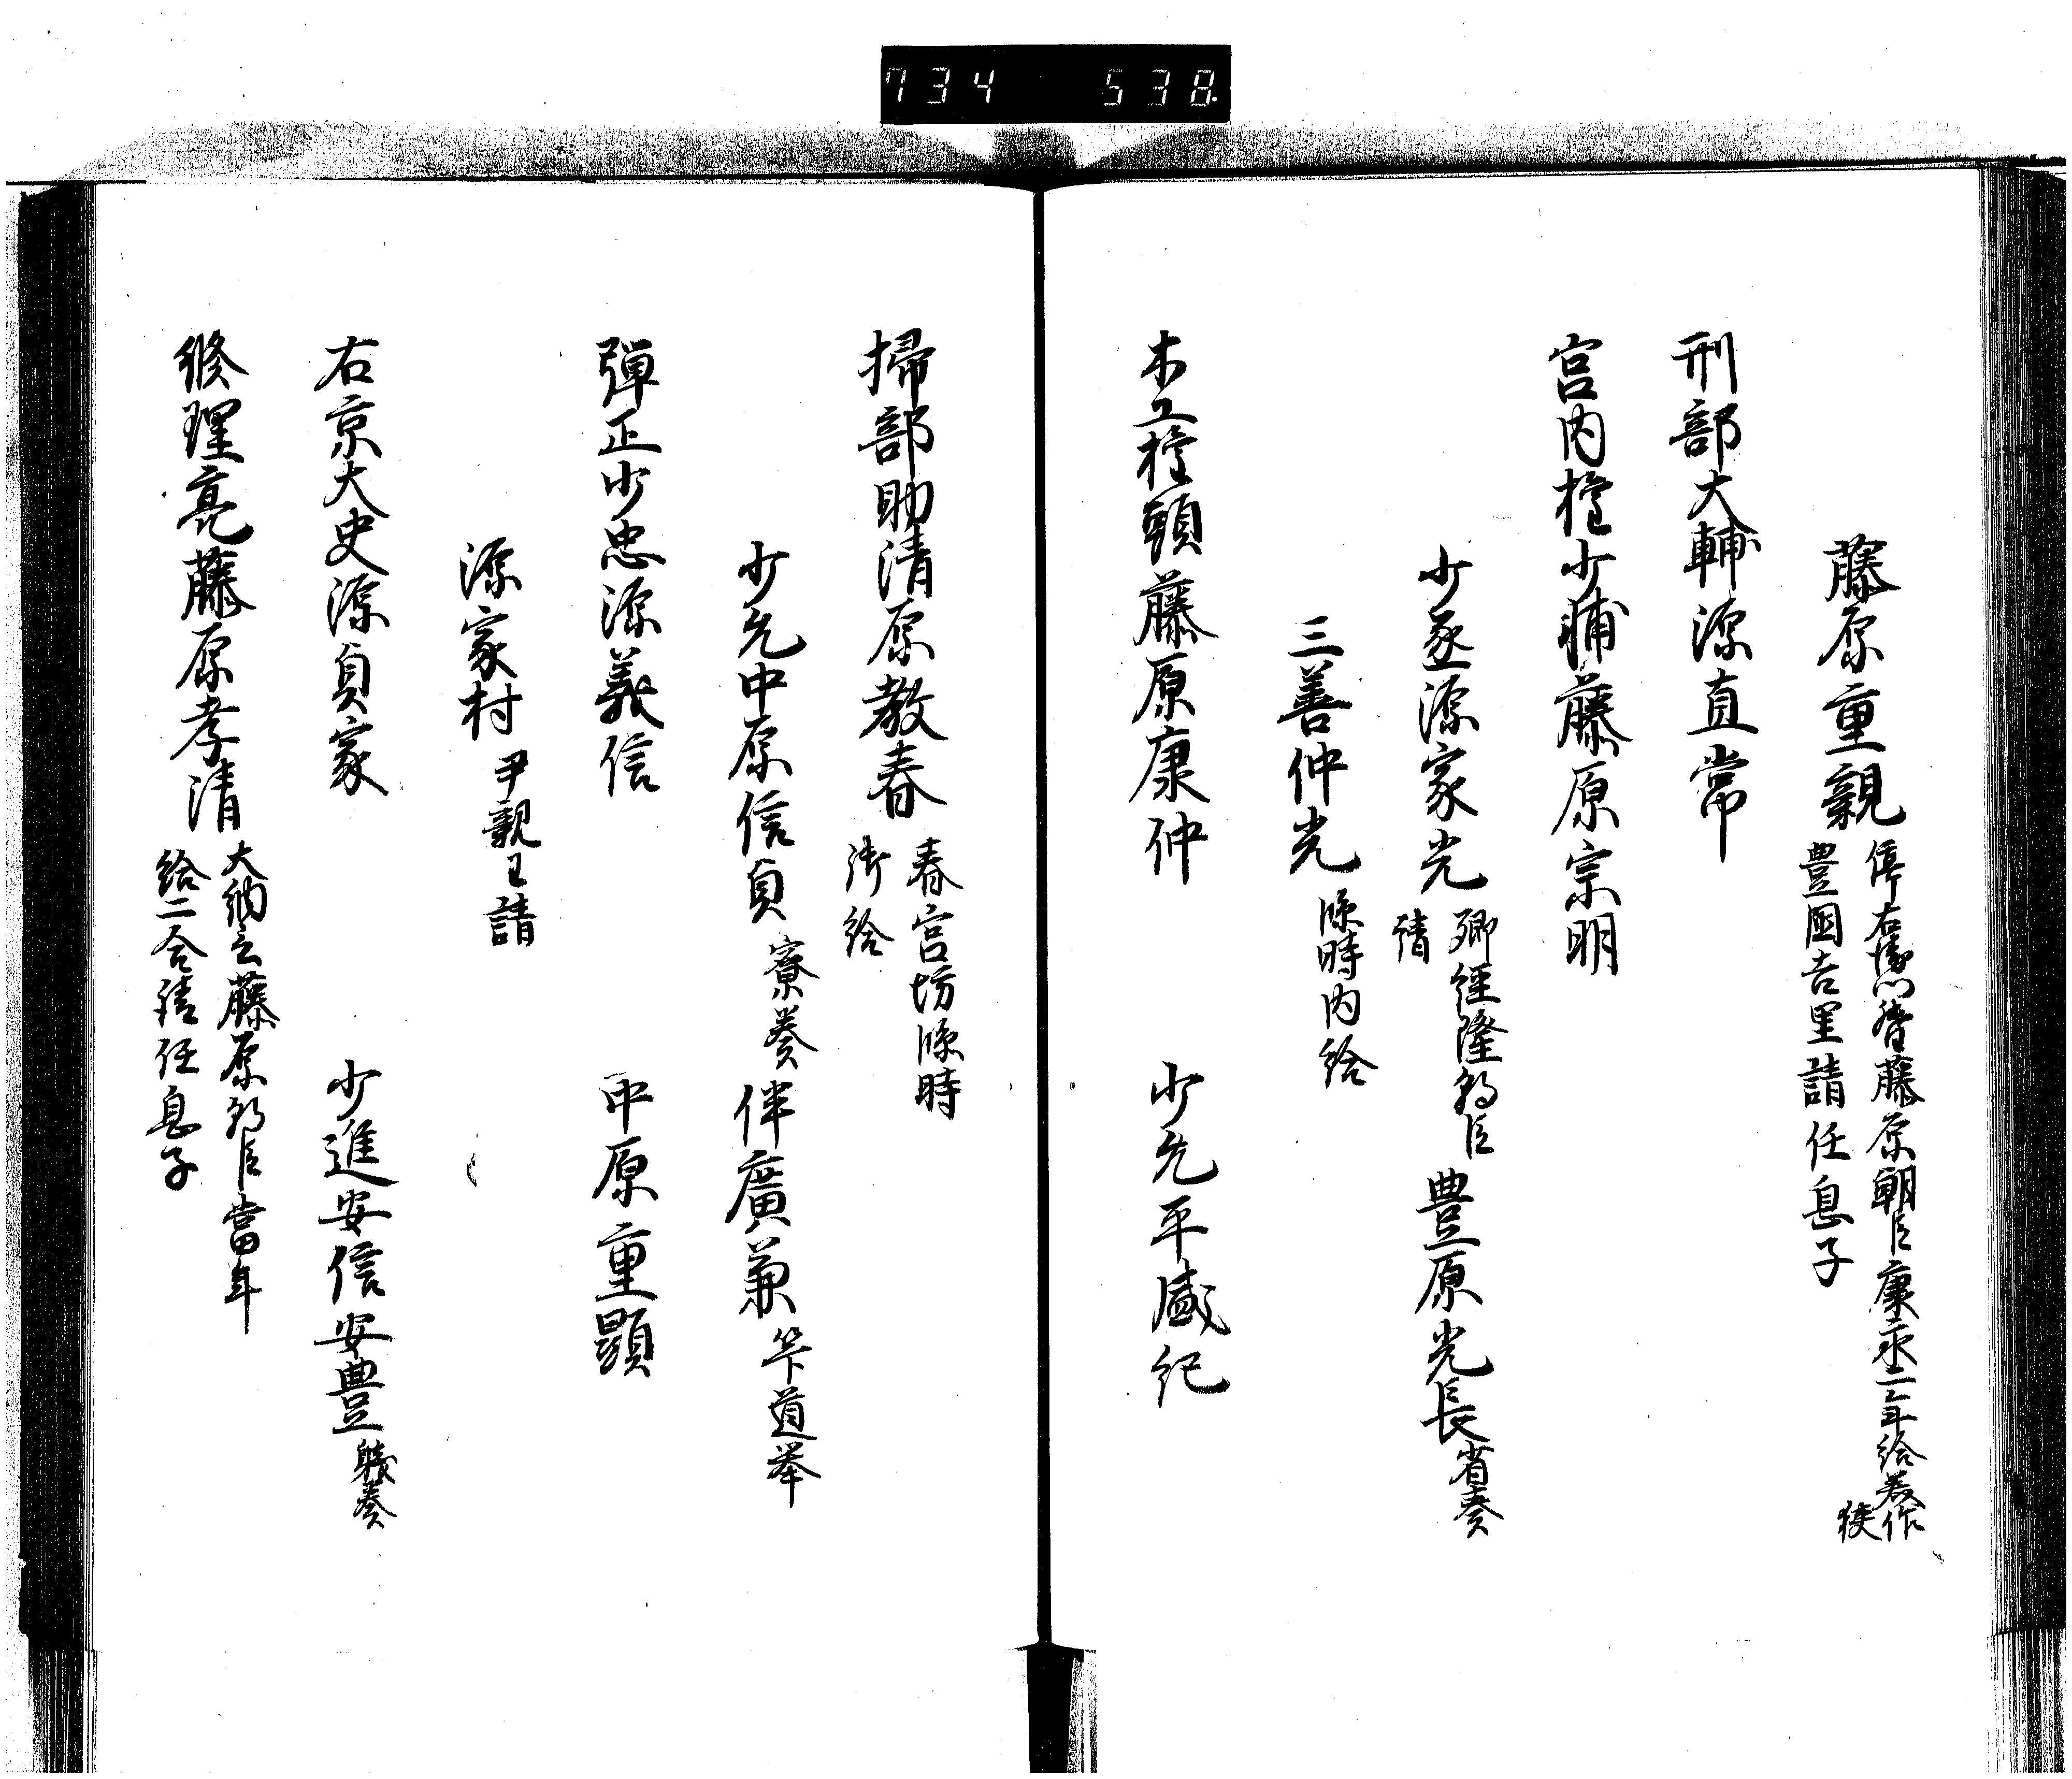 734 538
藤原重親
停右衛門督藤原朝臣康永二年給若狭
豊國吉里請任息子
刑部大輔源直常
宮内権少輔藤原宗明
少丞源家光
卿経隆朝臣
請
豊原光長 省奏
三善仲光 臨時内給
木工権頭藤原康仲 少允平盛紀
掃部助清原教春
春宮坊臨時
御給
少允中原信貞 寮奏 伴廣兼 笇道挙
弾正少忠源義信 中原重顕
源家村 尹親王請
右京大史源貞家 少進安信安豊 職奏
修理亮藤原孝清
大納言藤原朝臣當年
給二合請任息子